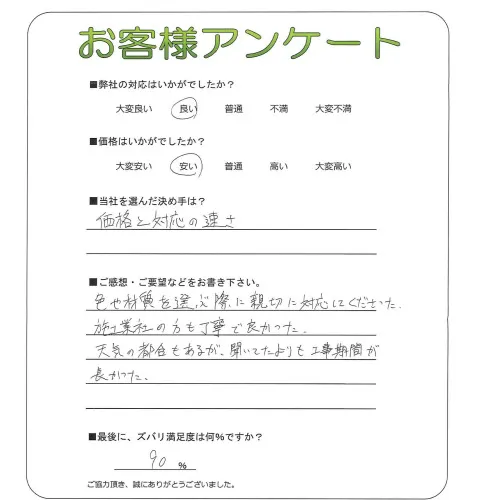 お客様アンケート
■弊社の対応はいかがでしたか？
大変良い 良い 普通 不満 大変不満
■価格はいかがでしたか？
大変安い 安い 普通 高い 大変高い
■当社を選んだ決め手は？
価格と対応の速さ
■ご感想・ご要望などをお書き下さい。
色や材質を選ぶ際に親切に対応してくださった.
施工業社の方も丁寧で良かった.
天気の都合もあるが、聞いてたよりも工事期間が
長かった.
■最後に、ズバリ満足度は何%ですか？
90 %
ご協力頂き、誠にありがとうございました。